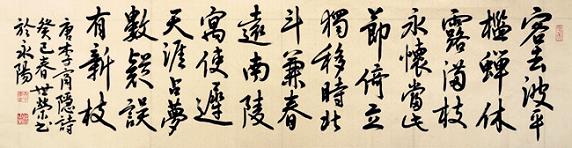 客去波平
檻蟬休
露滿枝
永懷當此
節倚立
獨移時北
斗兼春
遠南陵
寓使遲
天涯占夢
數疑誤
有新枝
唐李商隱詩
癸巳春世榮书
於永陽